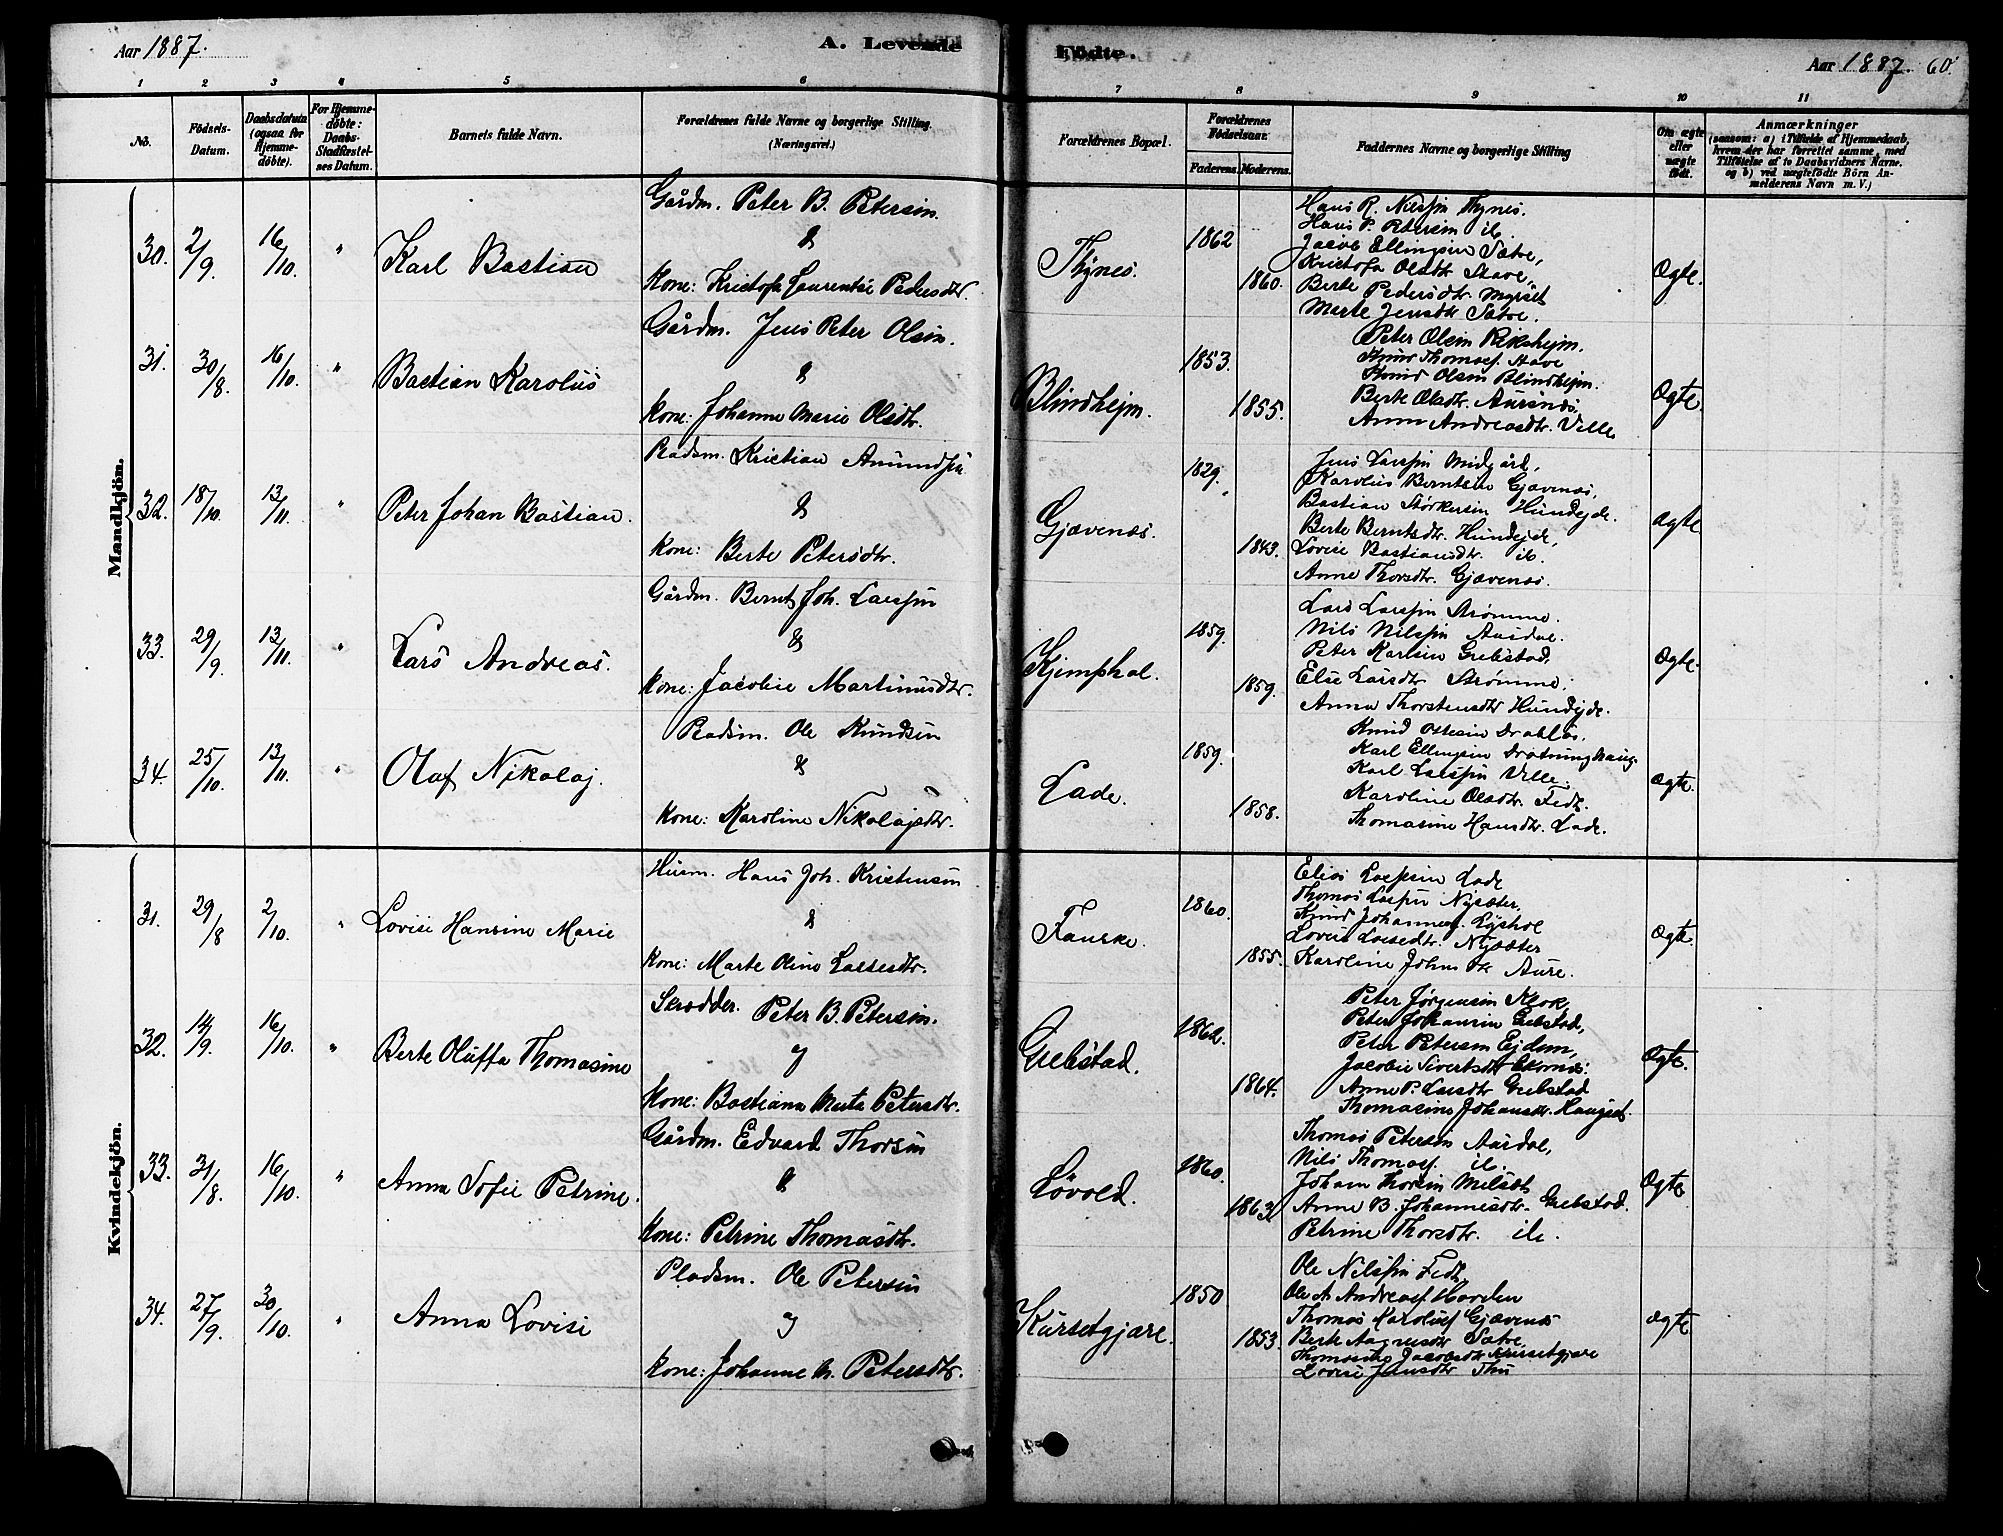 Aar 1887. A. Levende Födte. Aar 1887. 60.
1 2 3 4 5 6 7 8 9 10 11
No. Födsels-Datum. Daabsdatum (ogsaa for Hjemmedöbte). For Hjemmedöbte: Daabs-Stadfæstelses Datum. Barnets fulde Navn. Forældrenes fulde Navne og borgerlige Stilling. (Næringsvei.) Forældrenes Bopæl. Forældrenes Födselsaar. Faderens. Moderens. Faddernes Navne og borgerlige Stilling Om ægte eller uægte födt. Anmærkninger (saasom: a) i Tilfælde af Hjemmedaab, hvem der har forrettet samme, med Tilföielse af to Daabsvidners Navne. og b) ved uægtefödte Börn Anmelderens Navn m. V.)
Mandkjön.
30. 2/9 16/10. " Karl Bastian
Gårdm. Peter B. Petersen.
&
Kone: Kristofa Laurentse Pedersdtr.
Thynes. 1862 1860.
Hans R. Nilssen Thynes.
Hans P. Petersen ib.
Jacob Ellingsen Satre,
Kristofa Olsdtr Stave,
Berte Pedersdtr. Myrset
Marte Jensdtr Satre.
Ægte.
31. 30/8. 16/10. " Bastian Karolus
Gårdm. Jens Peter Olsen.
&
Kone: Johanne Marie Olsdtr.
Blindhejm. 1853. 1855.
Peter Olsen Riksheim.
Knud Thomasf. Stave
Knud Olsen Blindhejm.
Berte Olsdtr. Aursnes,
Anne Andreasdtr. Velle
Ægte.
32. 18/10. 13/11. " Peter Johan Bastian.
Pladsm. Kristian Amundsen
&
Kone: Berte Petersdtr.
Gjævenes. 1829. 1843.
Jens Larssen Midgård,
Karolus Berntsen Gjævenes,
Bastian Størkersen Hundejde.
Berte Berntsdtr. Hundejde,
Lovise Bastiansdtr. ib
Anne Thorsdtr. Gjævenes.
ægte
33. 29/9. 13/11. " Lars Andreas.
Gårdm. Bernt Joh. Larssen
&
Kone: Jacobie Martinusdtr.
Kjemphol. 1859. 1859.
Lars Larssen Strømme.
Nils Nilssen Aasdal.
Peter Karlsen Grebstad,
Else Larsdtr Strømme.
Anna Thorstensdtr Hundejde.
Ægte.
34. 25/10. 13/11. " Olaf Nikolaj.
Pladsm. Ole Knudsen
&
Kone: Karoline Nikolajsdtr.
Lade. 1859. 1858.
Knud Ottesen Drabløs.
Karl Ellingsen Dronninghaug.
Karl Larssen Velle.
Karoline Olsdtr. Fedt.
Thomasine Hansdtr. Lade.
Ægte.
Kvindekjön.
31. 29/8 2/10. " Lovise Hansine Marie
Husm. Hans Joh. Kristensen
&
Kone: Marte Oline Lassesdtr.
Fauske. 1860. 1855.
Elias Larssen Lade
Thomas Larssen Nysæter,
Knud Johannesf. Lyshol
Lovise Larsdtr. Nysæter
Karoline Johnsdtr Aure.
Ægte.
32. 14/9. 16/10. " Berte Oluffa Thomasine
Skrædder. Peter B. Petersen.
og
Kone: Bastiana Marta Petersdtr.
Grebstad. 1862. 1864.
Peter Jørgensen Klok,
Peter Johansen Grebstad,
Peter Petersen Ejdem,
Jacobie Sivertsdtr Ekornes.
Anne P. Larsdtr Grebstad
Thomasine Johansdtr. Hauged.
Ægte.
33. 31/8. 16/10. " Anna Sofie Petrine.
Gårdm. Edvard Thorsen
&
Kone: Petrine Thomasdtr.
Løvold. 1860. 1863.
Thomas Petersen Aasdal,
Nils Thomasf. ib.
Johan Thorsen
Anne B. Johannesdtr. Grebstad.
Petrine Thorsdtr. ib.
Ægte
34. 27/9. 30/10. " Anna Lovise
Pladsm. Ole Petersen
og
Kone: Johanne M. Petersdtr.
Kursetgjære. 1850 1853.
Ole Nilssen Fedt,
Ole A. Andreasf Harden
Thomas Karolusf Gjævenes
Berte Satre,
Jacobsdtr Kursetgjære
Lovise Jensdtr Thu
ægte